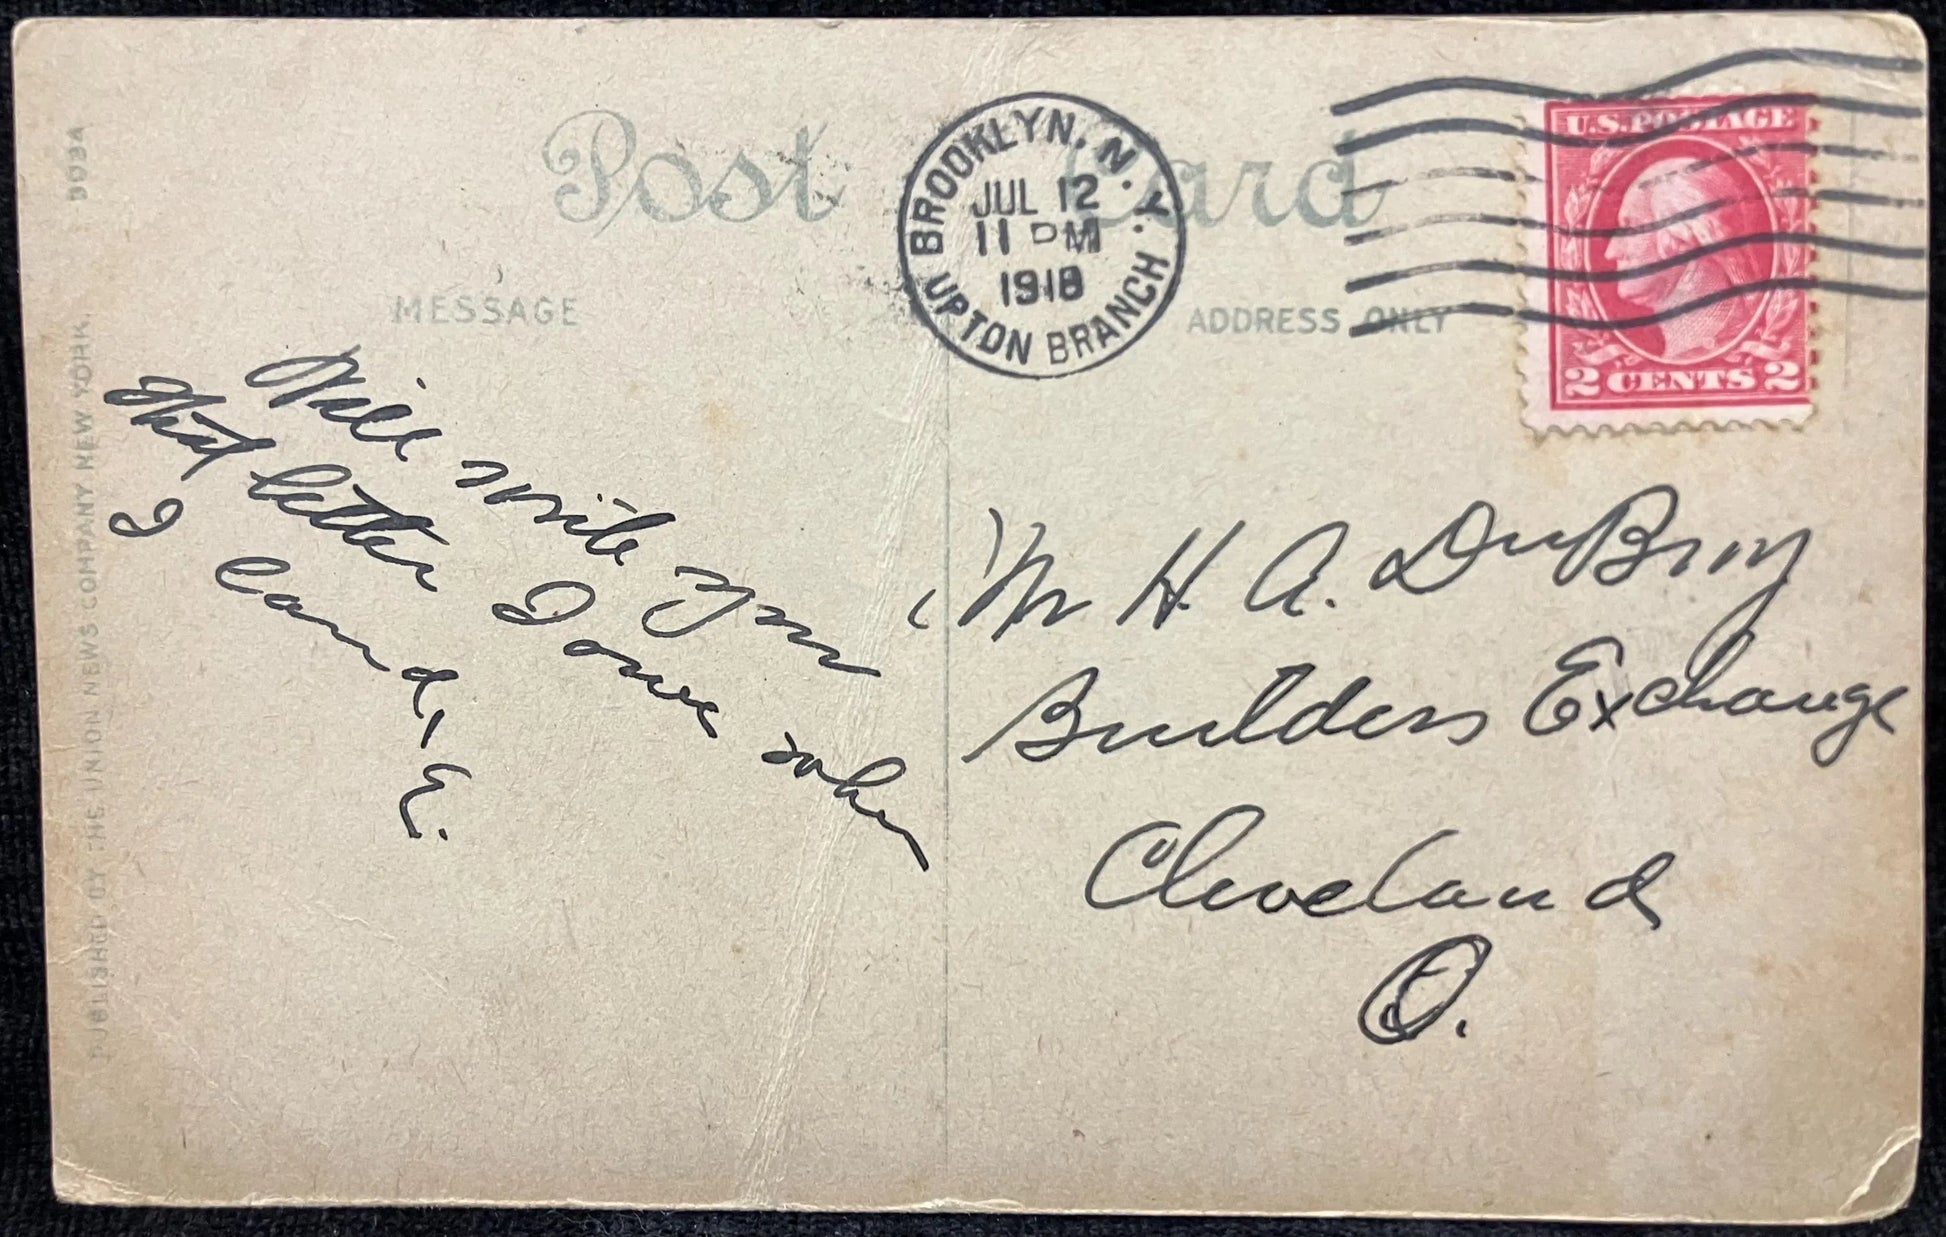 Post Card
BROOKLYN, N.Y.
JUL 12
11 PM
1918
UPTON BRANCH
U.S. POSTAGE
2 CENTS 2
MESSAGE
ADDRESS ONLY
Will write you
that letter I owe when
I can
E.
Mr H. A. DuBroy
Builders Exchange
Cleveland
O.
PUBLISHED BY THE UNION NEWS COMPANY NEW YORK.